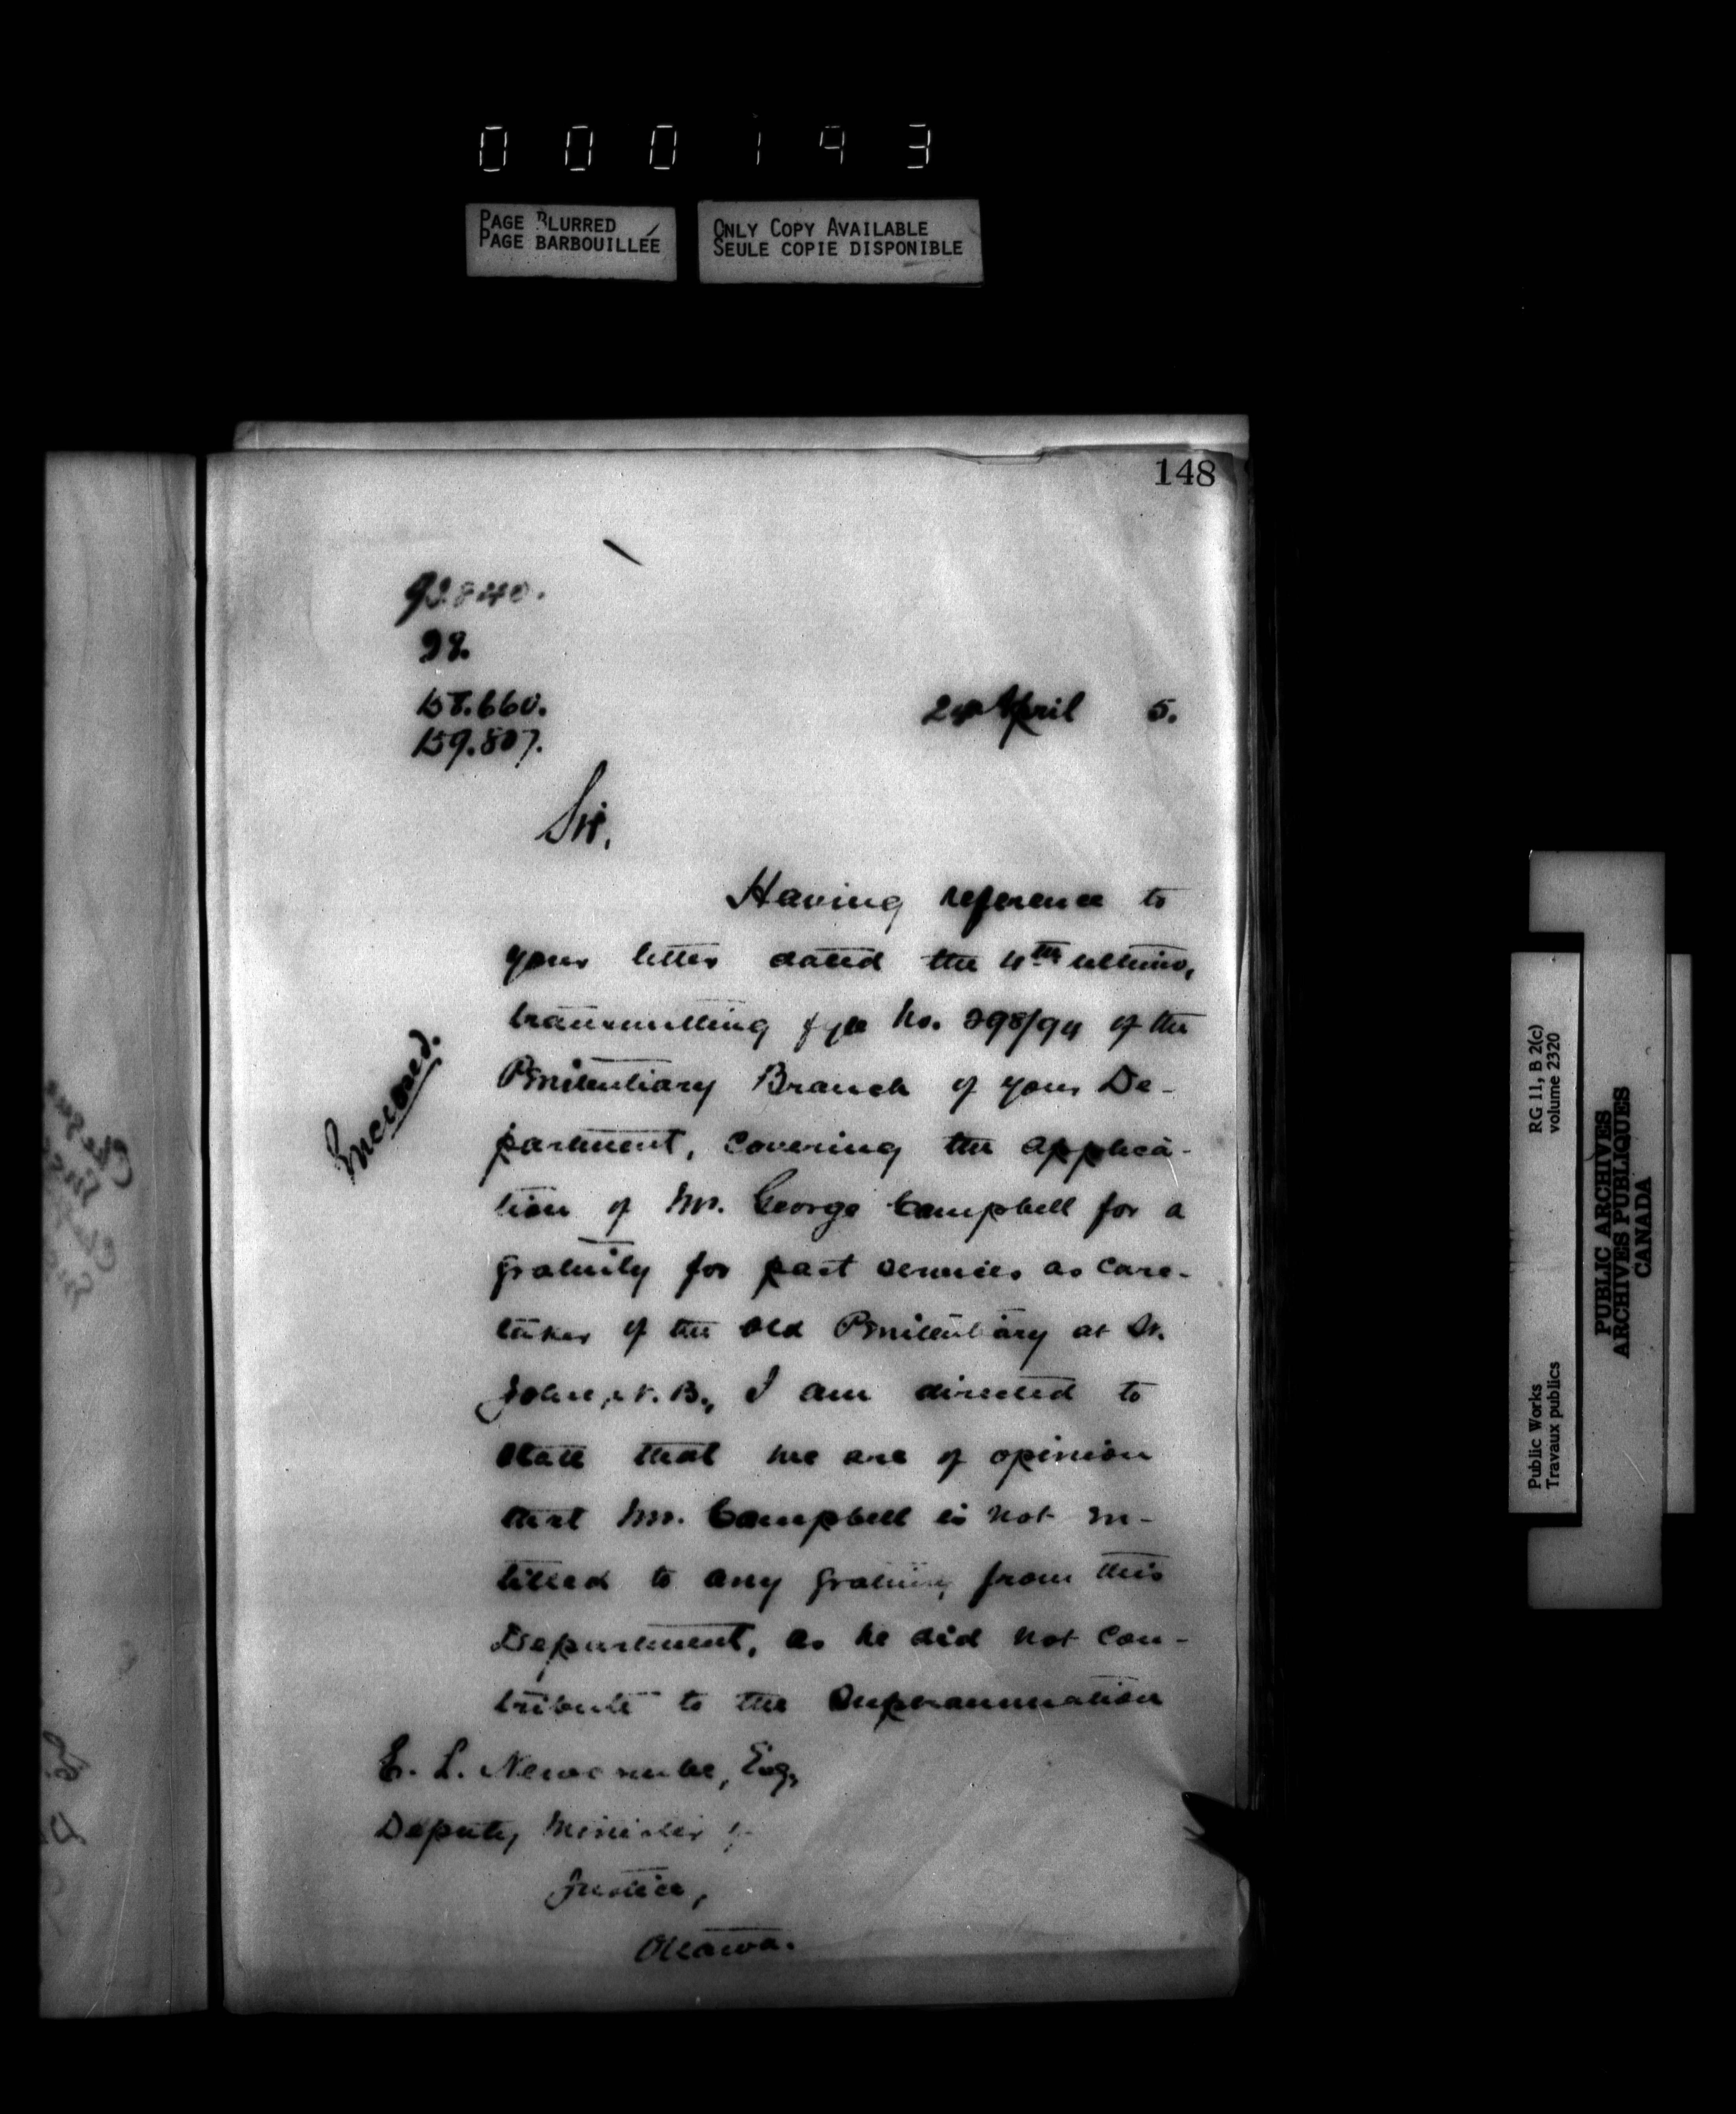 000193
PAGE BLURRED
PAGE BARBOUILLÉE
ONLY COPY AVAILABLE
SEULE COPIE DISPONIBLE
148
98.
158.660.
159.807.
April 5.
Sir,
Having reference to
your letter dated the 4th ultimo,
transmitting fyle No. 298/94 of the
Penitentiary Branch of your De-
partment, covering the applica-
tion of Mr. George Campbell for a
gratuity for past services as care-
taker of the old Penitentiary at St.
John, N.B., I am directed to
state that we are of opinion
that Mr. Campbell is not en-
titled to any gratuity from this
Department, as he did not con-
tribute to the Superannuation
E. L. Newcombe, Esq,
Deputy Minister of
Justice,
Ottawa.
Public Works
Travaux publics
RG 11, B 2(c)
volume 2320
PUBLIC ARCHIVES
ARCHIVES PUBLIQUES
CANADA